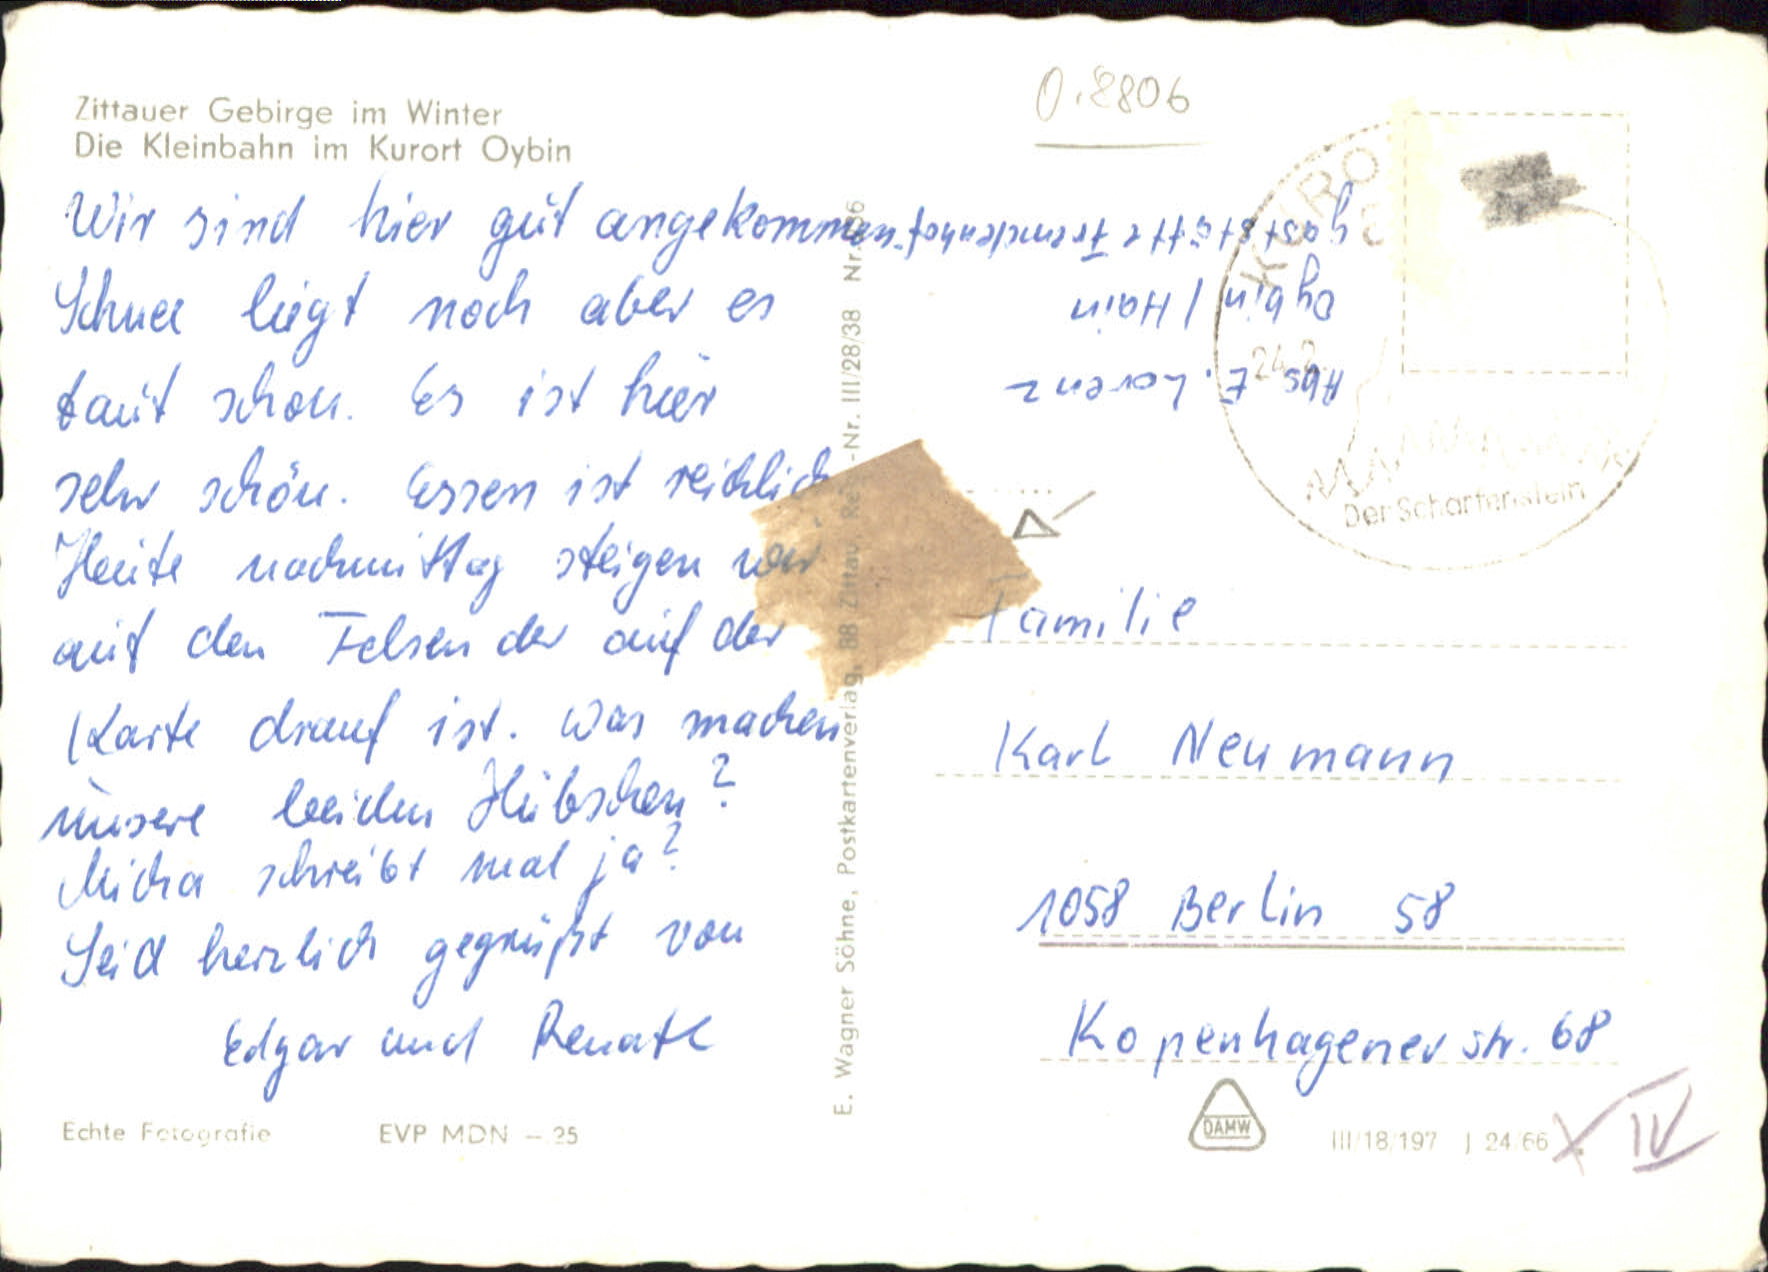 Zittauer Gebirge im Winter
Die Kleinbahn im Kurort Oybin
0.8806
Wir sind hier gut angekommen.
Schnee liegt noch aber es
taut schon. Es ist hier
sehr schön. Essen ist reichlich
Heute nachmittag steigen wir
auf den Felsen der auf der
Karte drauf ist. Was machen
unsere beiden Hübschen?
Micha schreibt mal ja?
Seid herzlich gegrüßt von
Edgar und Renate
Echte Fotografie EVP MDN –.25
E. Wagner Söhne, Postkartenverlag, 88 Zittau, -Nr. III/28/38
Abs. E. Lorenz
Oybin / Hain
gaststätte Fremdenhof
KURO
24.2.
Der Scharfenstein
Familie
Karl Neumann
1058 Berlin 58
Kopenhagener str. 68
DAMW
III/18/197 J 24/66
IV